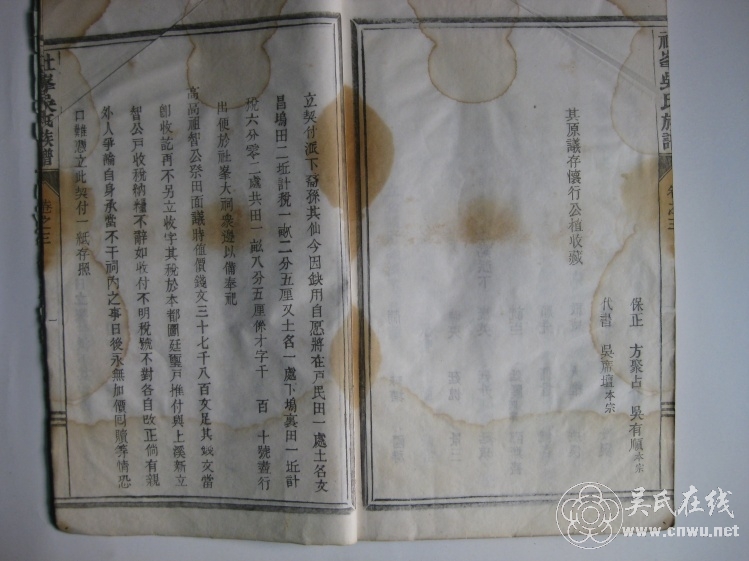 其原議存懷行公植收藏
保正 方聚占 吳有順本宗
代書 吳席壇本宗
立契付派下裔孫其仙今因缺用自愿將在戶民田一處土名女
昌塢田二坵計稅一畝二分五厘又土名一處下塢裏田一坵計
稅六分零二處共田一畝八分五厘係才字千 百 十號盡行
出便於社峯大祠眾邊以備奉祀
高品祖智公祭田面議時值價錢文三十七千八百文足其錢文當
卽收訖再不另立收字其稅於本都圖廷 戶推付與上溪新立
智公戶收稅納糧不辭如收付不明稅號不對各自改正倘有親
外人爭論自身承當不干祠內之事日後永無加價囘贖等情恐
口難憑立此契付一紙存照
社峯吳氏族譜
卷之三
一
吳氏族譜
卷之三
吳氏在线
www.cnwu.net